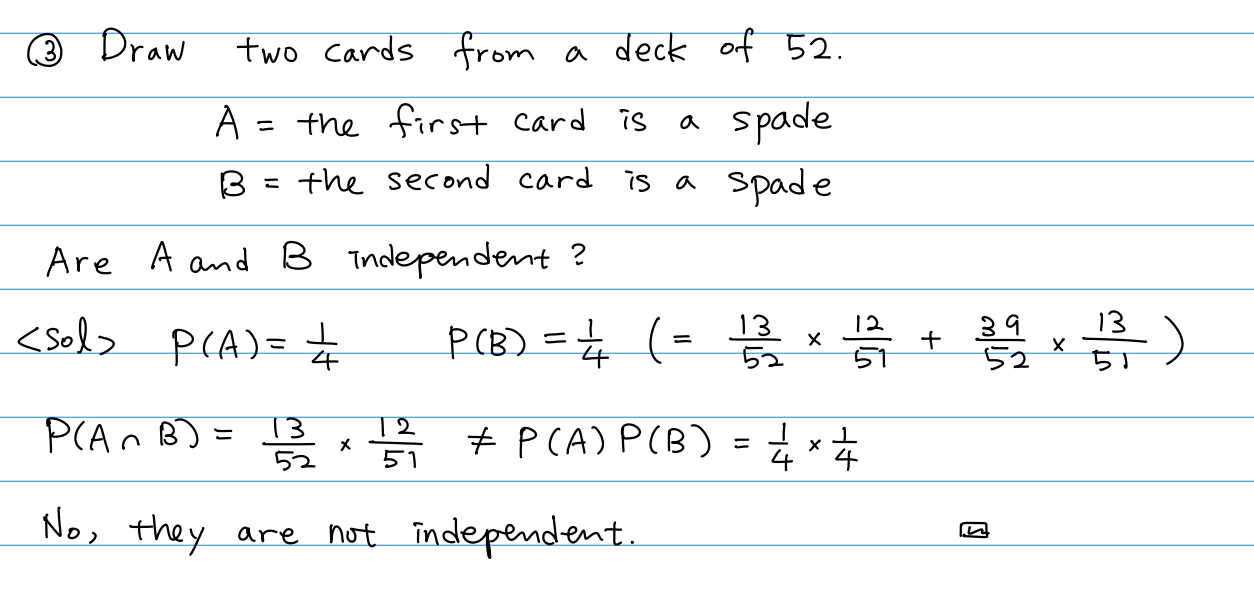 ③ Draw two cards from a deck of 52.
A = the first card is a spade
B = the second card is a spade
Are A and B independent?
<sol> P(A) = 1/4 P(B) = 1/4 ( = 13/52 × 12/51 + 39/52 × 13/51 )
P(A∩B) = 13/52 × 12/51 ≠ P(A) P(B) = 1/4 × 1/4
No, they are not independent.